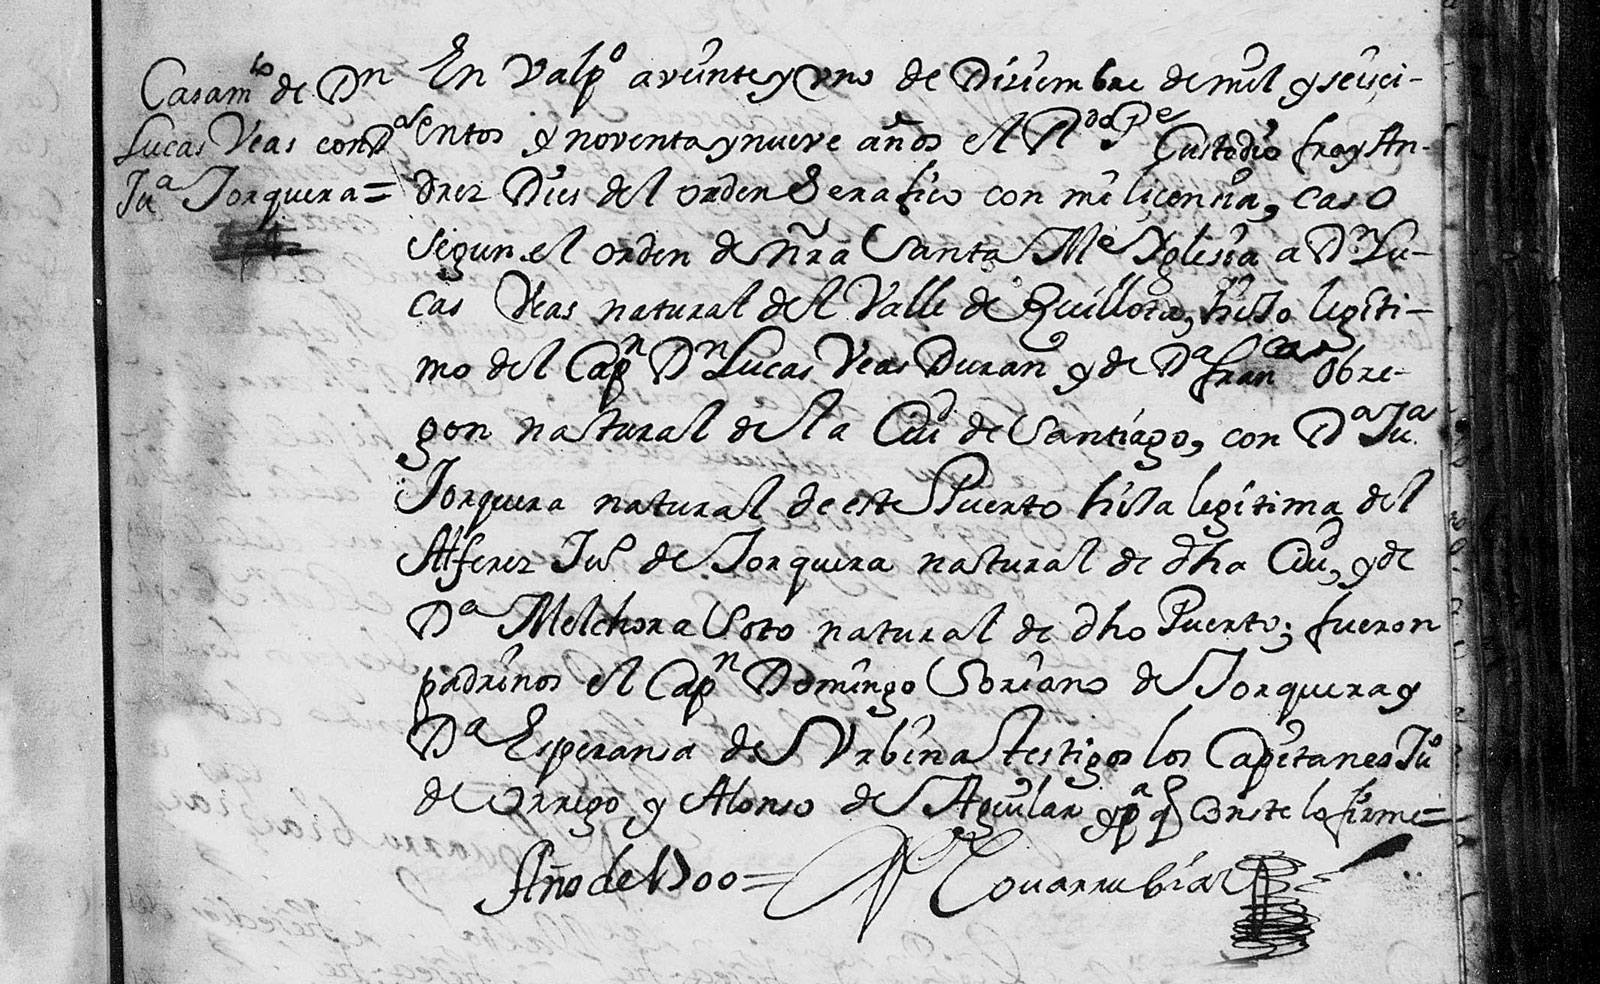 Casam^to de Dn
Lucas Veas con Da
Jua Jorquera =
En Valpo a veinte y uno de Diziembre de mil y seisci-
entos y noventa y nueve años el Rdo Pe Custodio fray An-
drez Dies del orden Serafico con mi licencia, caso
segun el orden de ñra Santa Me Yglesia a Dn Lu-
cas Veas natural del Valle de Quillota, hijo legiti-
mo del Capn Dn Lucas Veas Duran y de Da Franca Obre-
gon natural de la Ciud de Santiago, con Da Jua
Jorquera natural de este Puerto hija legitima del
Alferez Jun de Jorquera natural de dha Ciud, y de
Da Melchora Soto natural de dho Puerto; fueron
padrinos el Capn Domingo Soriano de Jorquera y
Da Esperansa de Urbina testigos los Capitanes Juo
de Orrego y Alonso de Aguilar y pa q conste lo firme =
Año de 1700 = Covarrubias